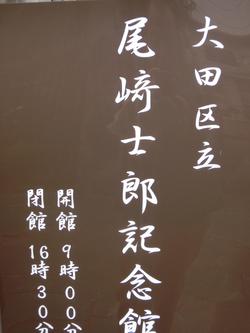 大田区立
尾﨑士郎記念館
開館 9時00分
閉館 16時30分